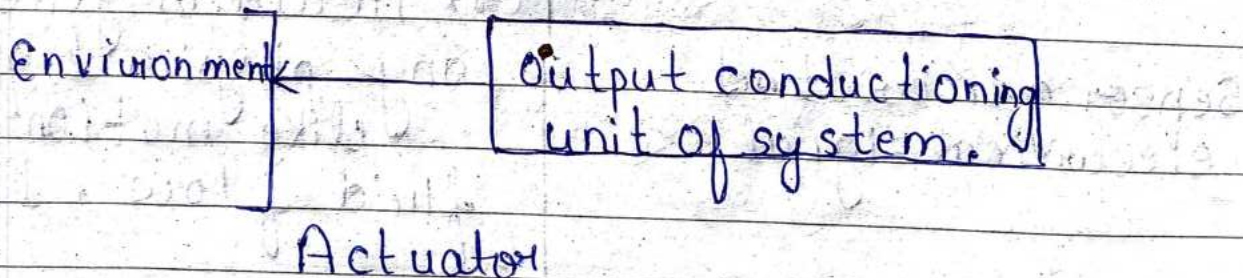 Environment
Output conductioning
unit of system.
Actuator